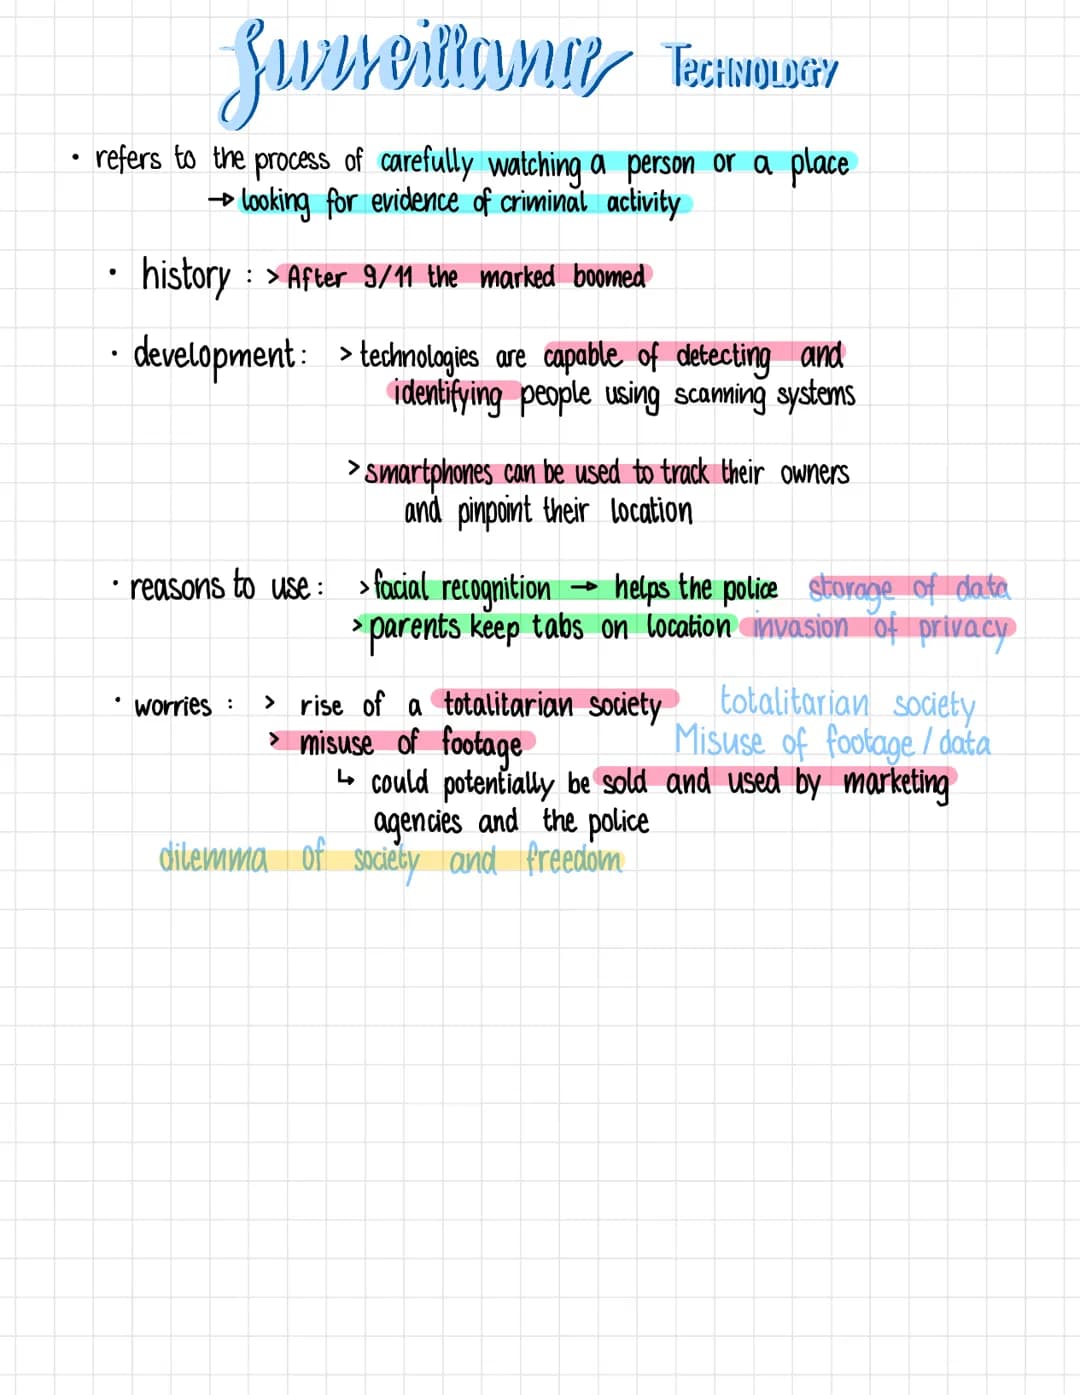 Surveillance TECHNOLOGY
• refers to the process of carefully watching a person or a place
→ looking for evidence of criminal activity
• history : > After 9/11 the marked boomed
• development: > technologies are capable of detecting and
identifying people using scanning systems
> smartphones can be used to track their owners
and pinpoint their location
• reasons to use : > facial recognition → helps the police storage of data
> parents keep tabs on location invasion of privacy
• worries : > rise of a totalitarian society totalitarian society
> misuse of footage Misuse of footage / data
↳ could potentially be sold and used by marketing
agencies and the police
dilemma of society and freedom